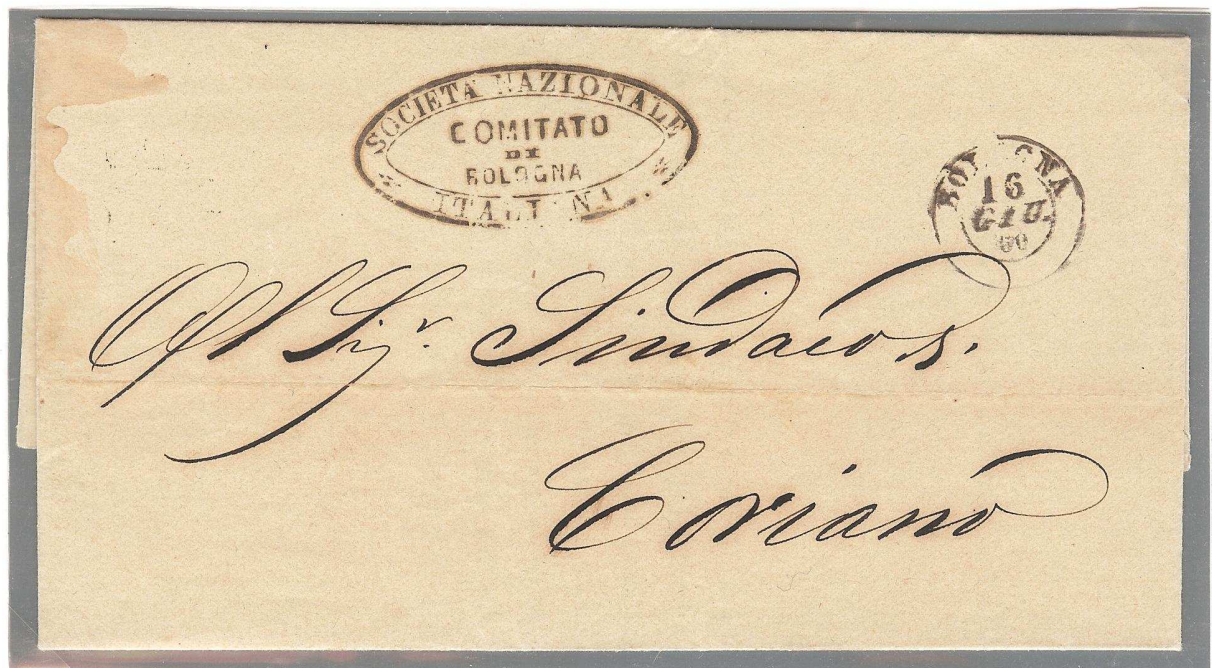 SOCIETÀ NAZIONALE
COMITATO
DI
BOLOGNA
ITALIANA
BOLOGNA
16
GIU.
60
Al Sigr. Sindaco
Coriano